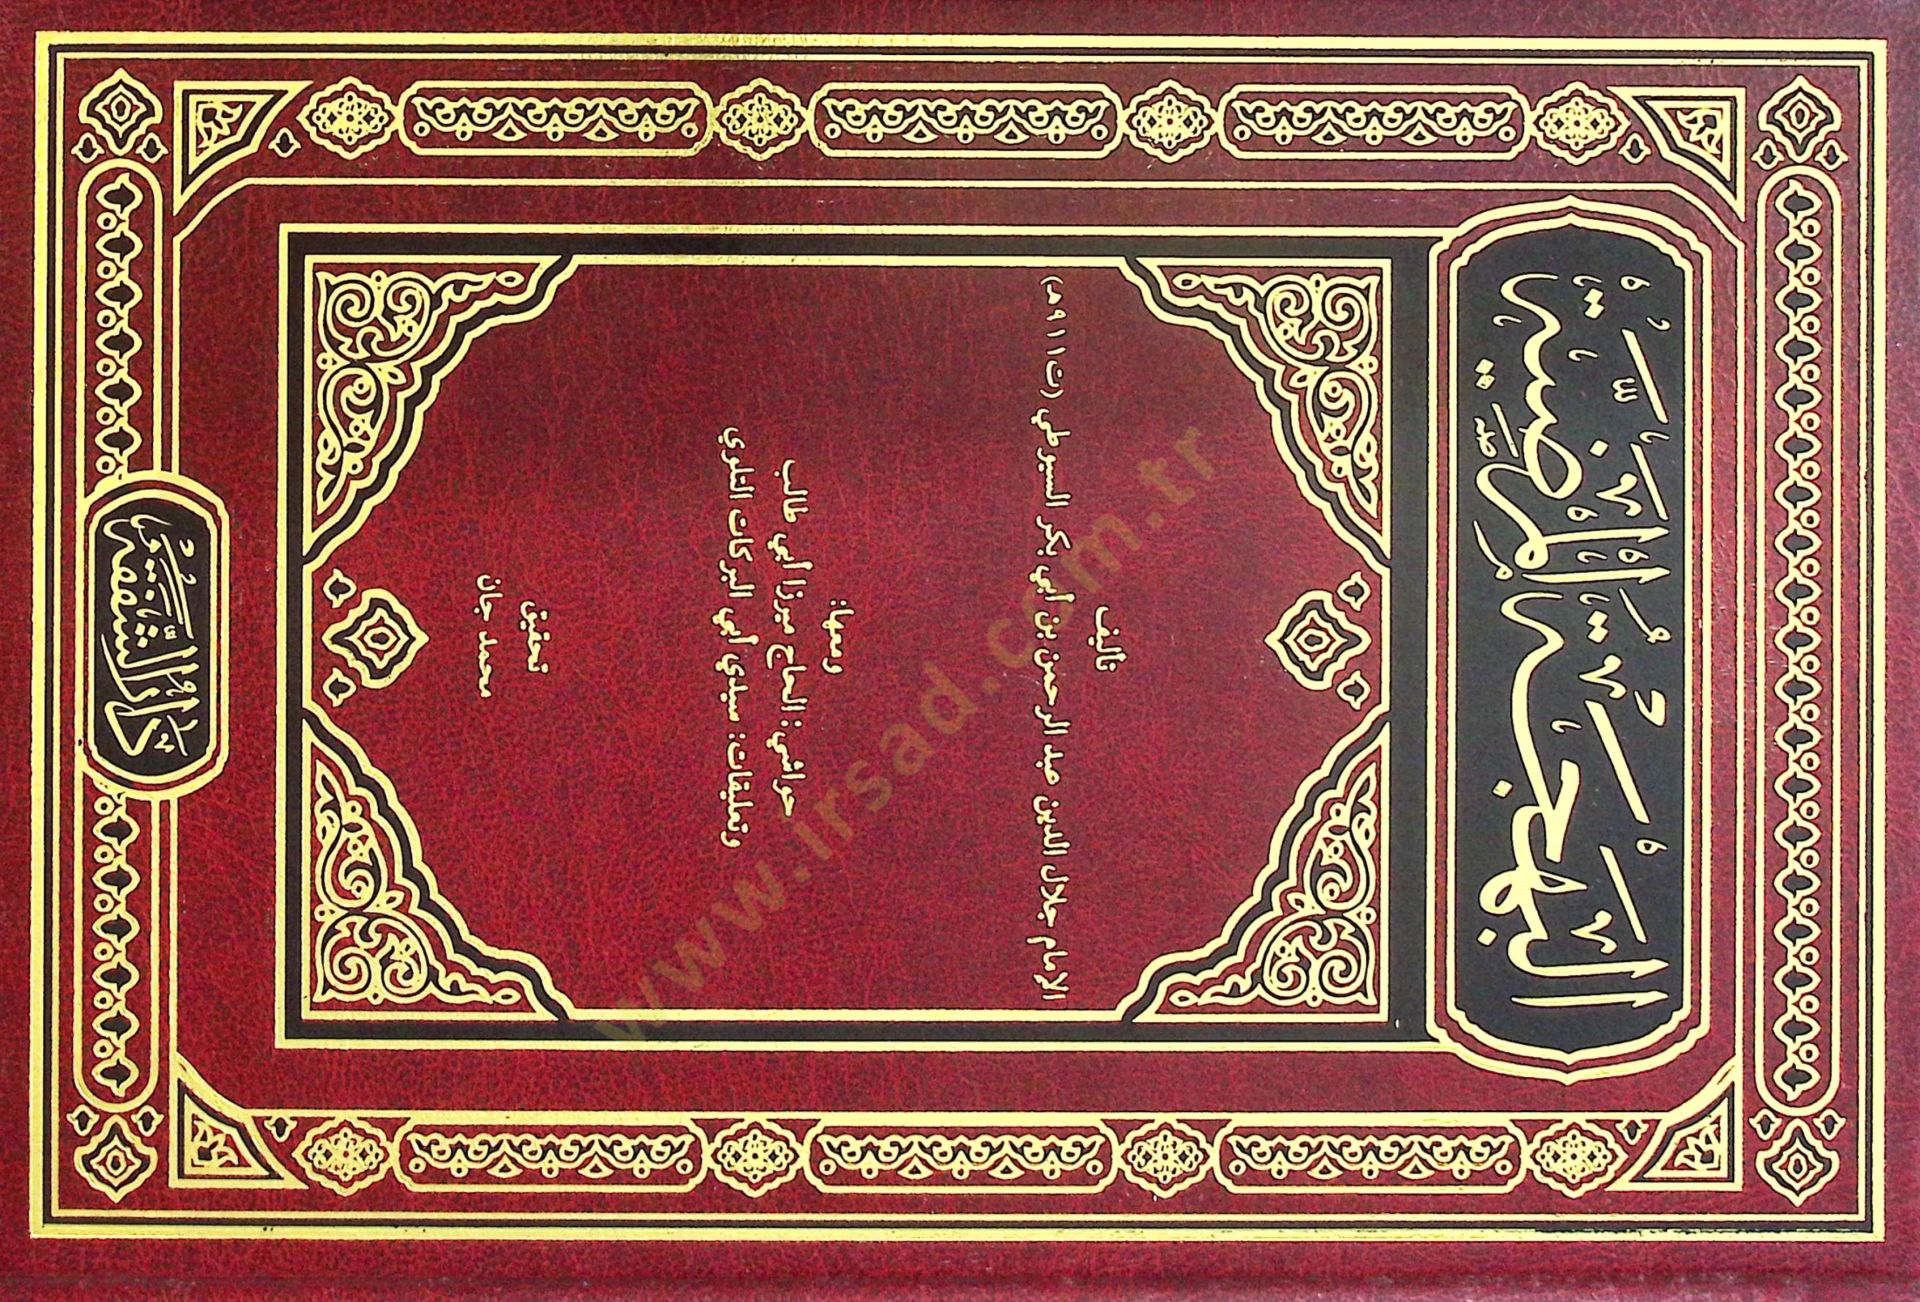 البهجة المرضية
تأليف
الإمام جلال الدين عبد الرحمن بن أبي بكر السيوطي (ت٩١١هـ)
ومعها:
حواشي: الحاج ميرزا أبي طالب
وتعليقات: سيدي أبي البركات التلوي
تحقيق
محمد جان
دار الشفقة
www.irsad.com.tr